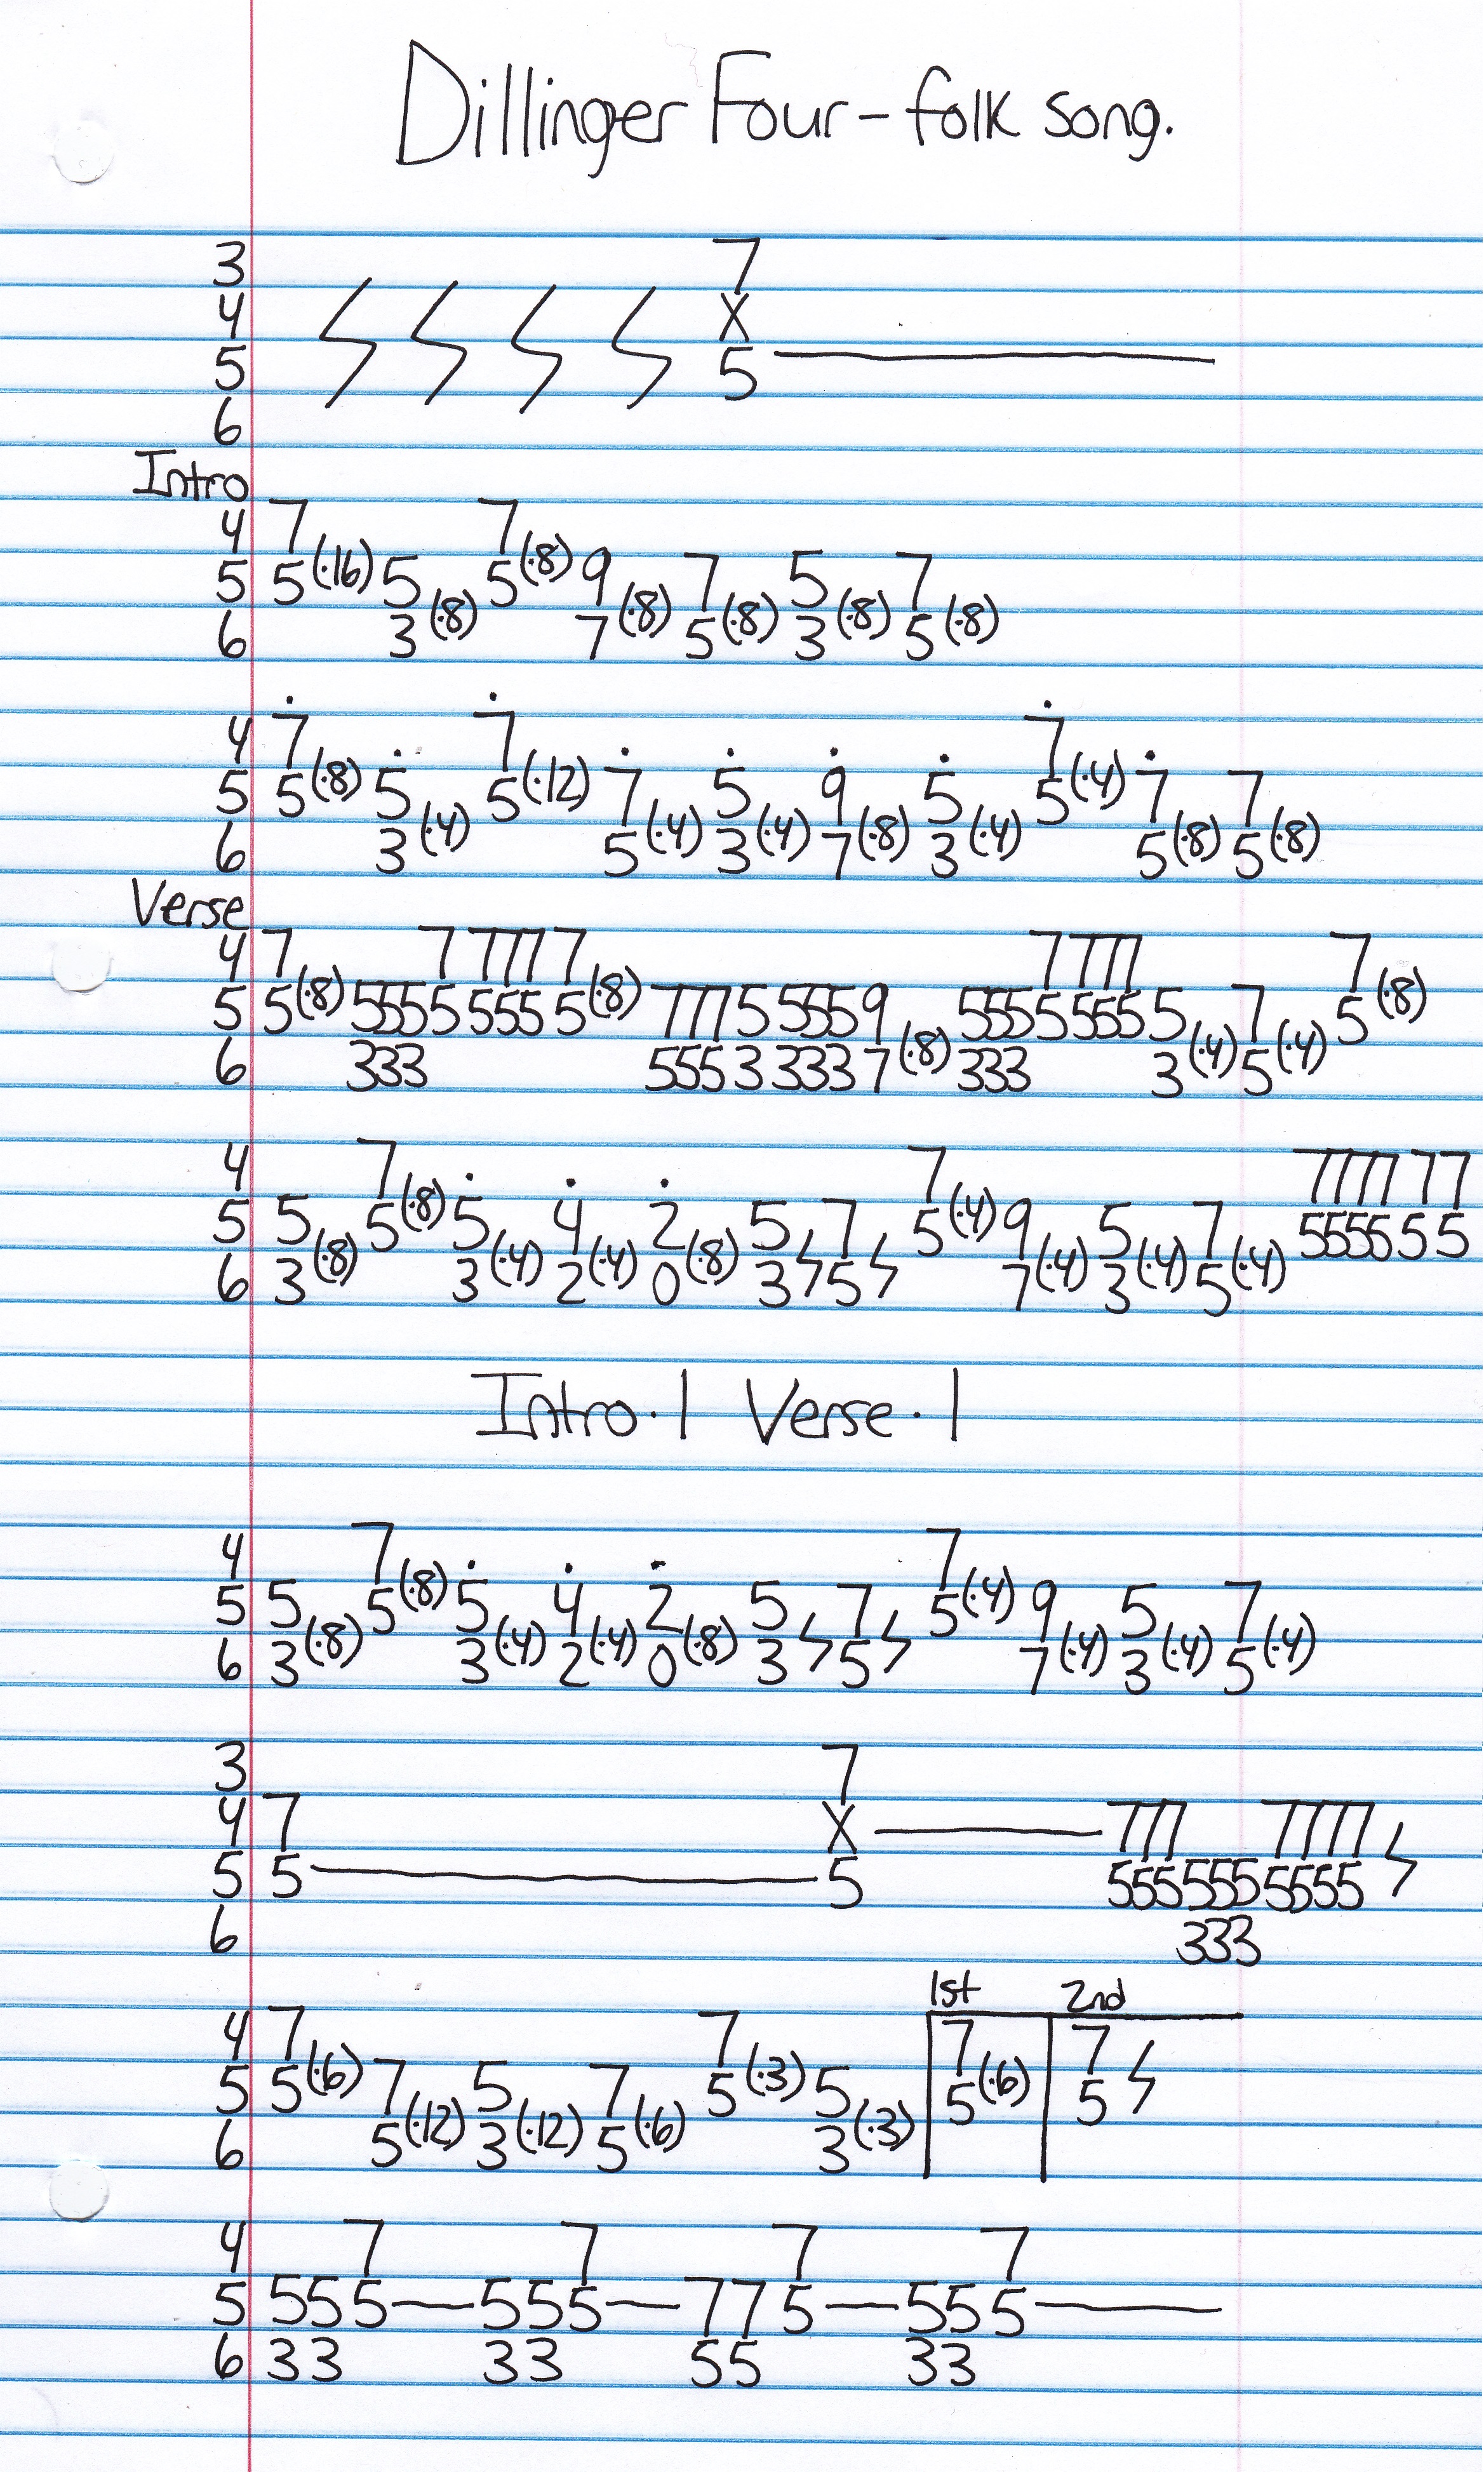 Dillinger Four - folk song.
3 7
4 X
5 5
6
Intro
4 7 7
5 5 (·16) 5 5 (·8) 9 7 5 7
6 3 (·8) 7 (·8) 5 (·8) 3 (·8) 5 (·8)
4 7 7 7
5 5 (·8) 5 5 (·12) 7 5 9 5 5 (·4) 7 7
6 3 (·4) 5 (·4) 3 (·4) 7 (·8) 3 (·4) 5 (·8) 5 (·8)
Verse
4 7 7 777 7 7 777 7
5 5 (·8) 5555 555 5 (·8) 777 5 555 9 5555 555 5 7 5 (·8)
6 333 555 3 333 7 (·8) 333 3 (·4) 5 (·4)
4 7 7 7777 77
5 5 5 (·8) 5 4 2 5 7 5 (·4) 9 5 7 5555 55
6 3 (·8) 3 (·4) 2 (·4) 0 (·8) 3 5 7 (·4) 3 (·4) 5 (·4)
Intro·1 Verse·1
4 7 7
5 5 5 (·8) 5 4 2 5 7 5 (·4) 9 5 7
6 3 (·8) 3 (·4) 2 (·4) 0 (·8) 3 5 7 (·4) 3 (·4) 5 (·4)
3 7
4 7 X 777 7777
5 5 5 555 555 5555
6 333
1st 2nd
4 7 7 7 7
5 5 (·6) 7 5 7 5 (·3) 5 5 (·6) 5
6 5 (·12) 3 (·12) 5 (·6) 3 (·3)
4 7 7 7 7
5 555 555 775 555
6 33 33 55 33